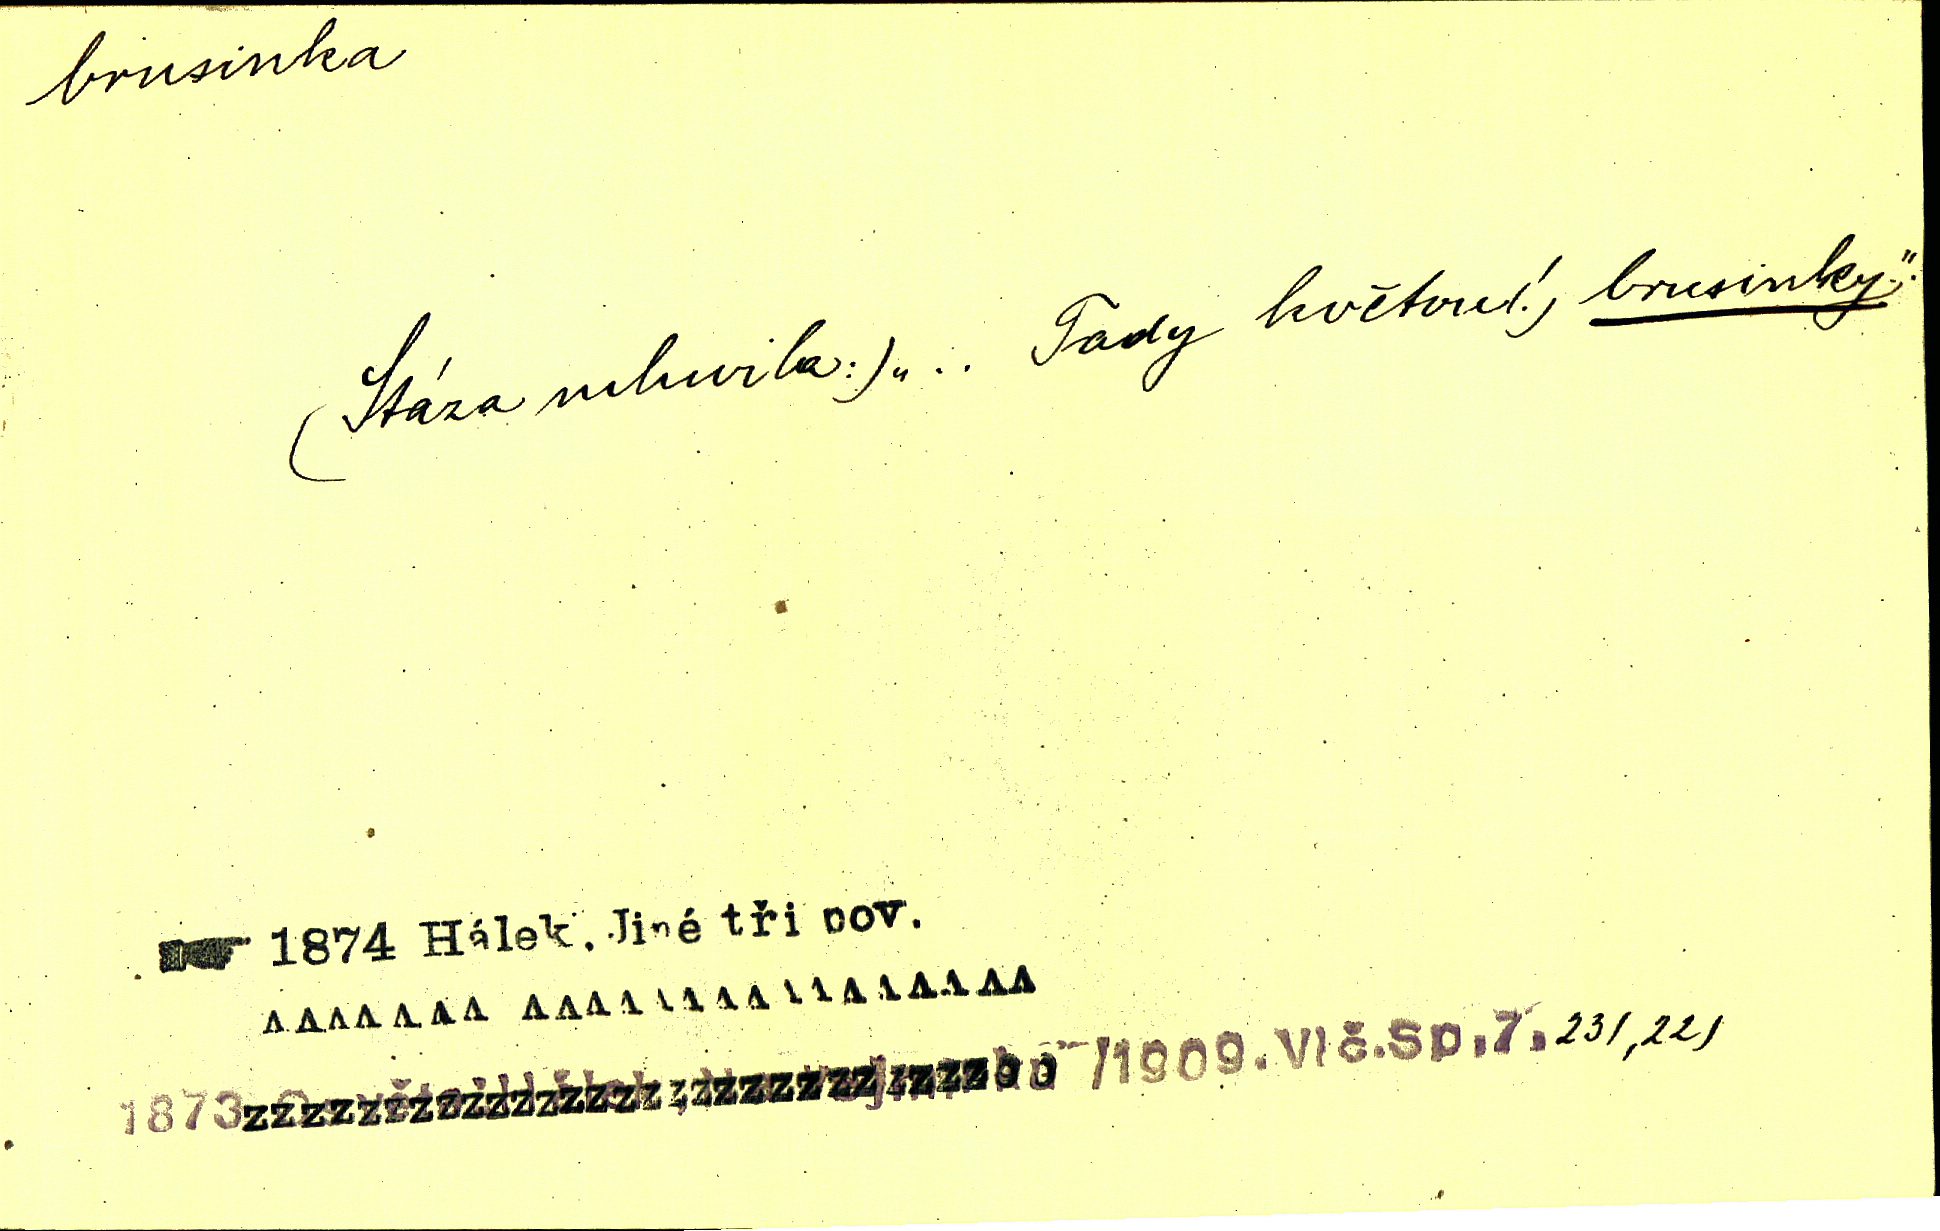 brusinka
(Stáza mluvila:) „ .. Tady květou(!) brusinky.“
☛ 1874 Hálek. Jiné tři pov.
1873 /1909. Vlč. Sp. 7. 231, 22)